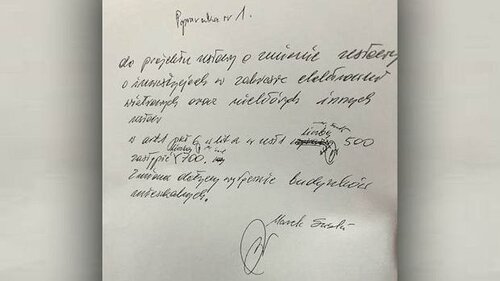 Poprawka nr 1.
do projektu ustawy o zmianie ustawy
o inwestycjach w zakresie elektrowni
wiatrowych oraz niektórych innych
ustaw
liczbę
w art. 1 pkt 6 lit a w ust 500
liczbą
zastąpić 700.
Zmiana dotyczy wyłącznie budynków
mieszkalnych.
Marek Suski